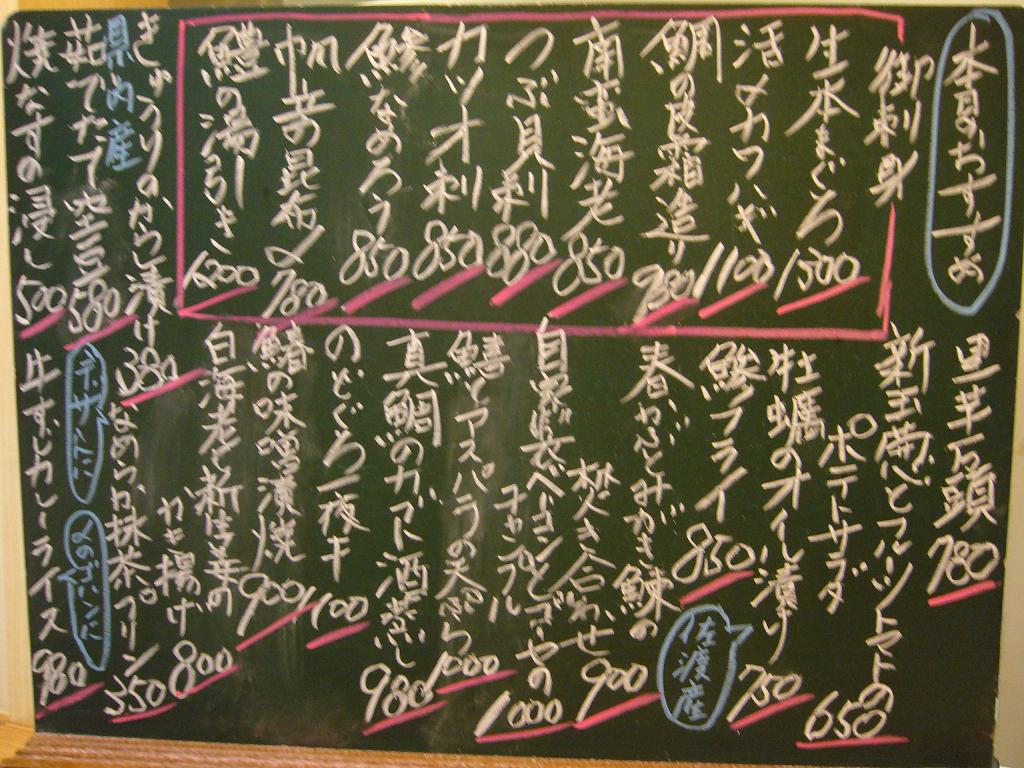 本日のおすすめ
御刺身
生本まぐろ 1300
活〆カワハギ 1100
鯛の皮霜造り 980
南蛮海老 850
つぶ貝刺 880
カツオ刺 850
鯵なめろう 850
帆立の昆布〆 780
鱧の湯引き 1200
きゅうりのからし漬け 380
県内産
茹でたて空豆 580
焼なすの浸し 500
里芋石頭 780
新玉葱とフルーツトマトの
ポテトサラダ 650
牡蠣のオイル漬け 750
佐渡産
鯵フライ 850
春かぶとみがき鰊の
焚き合わせ 900
自家製ベーコンとゴーヤの
チャンプル 1000
鱚とアスパラの天ぷら 1000
真鯛のカブト酒蒸し 980
のどぐろ一夜干 1100
鰆の味噌漬焼 900
白海老と新生姜の
かき揚げ 800
なめらか抹茶プリン 350
デザートに
〆のごはんに
牛すじカレーライス 980